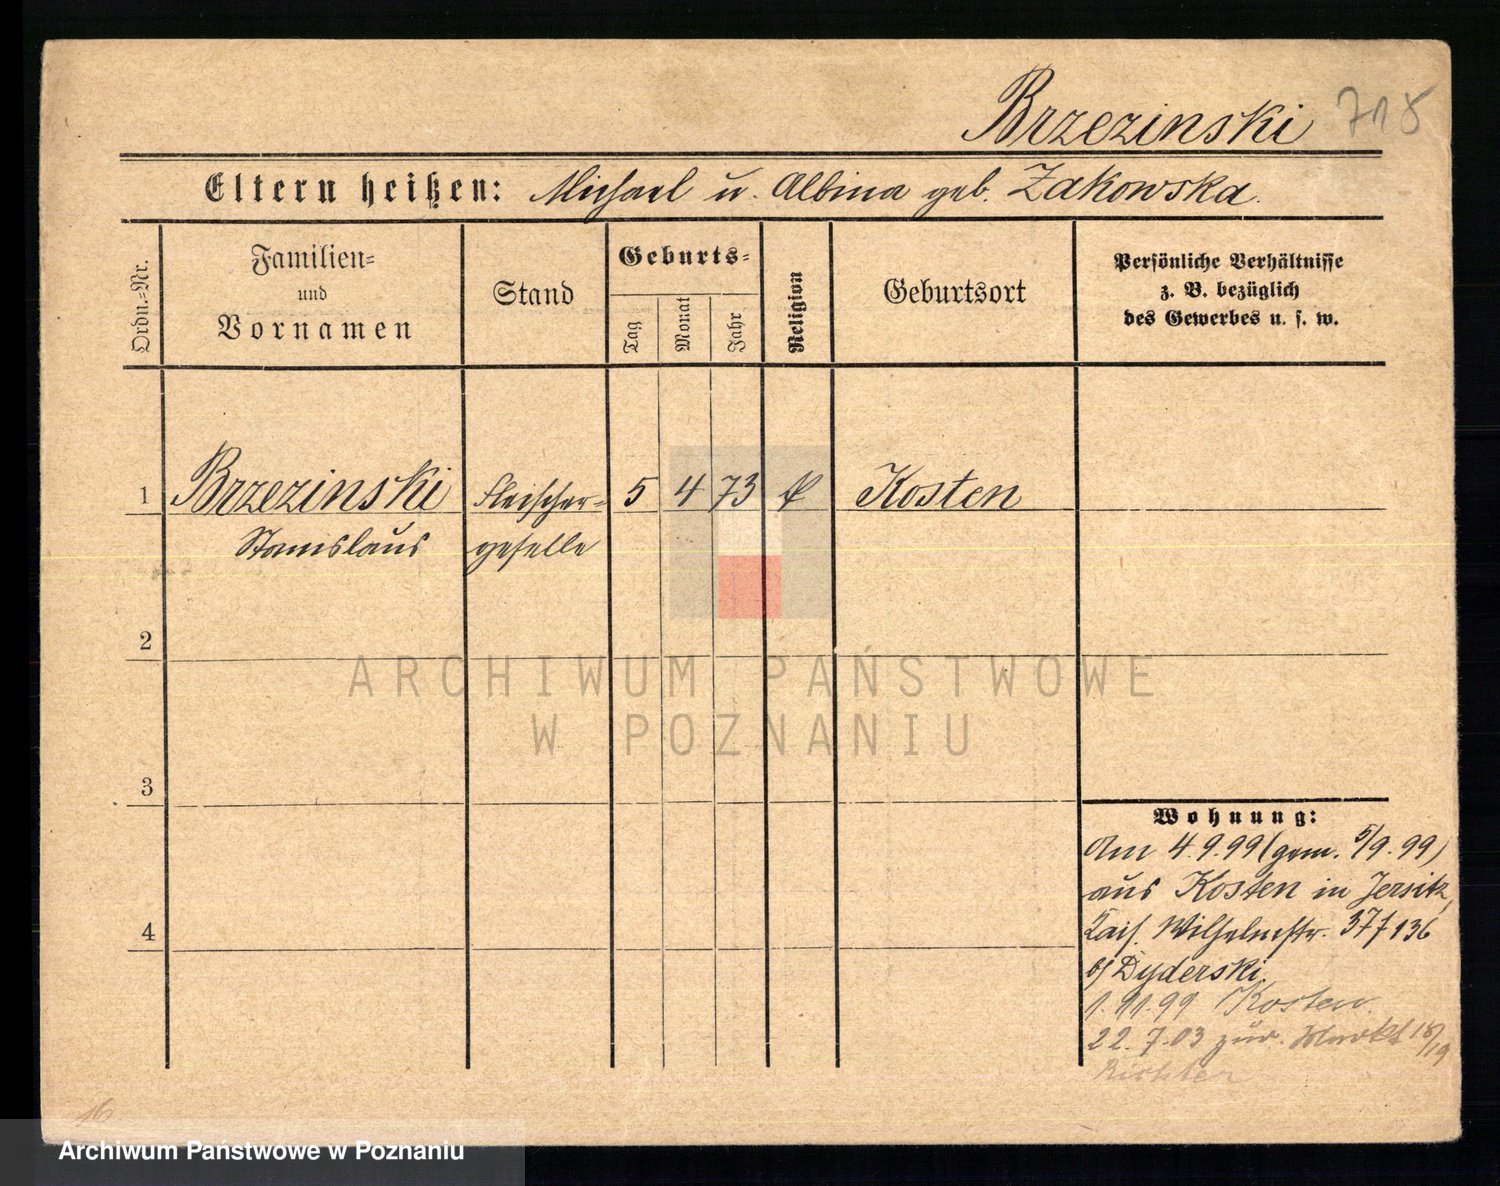 Brzezinski 718
Eltern heißen: Michael u. Albina geb. Zakowska.
Ordn.-Nr.
Familien-
und
Vornamen
Stand
Geburts-
Tag
Monat
Jahr
Religion
Geburtsort
Persönliche Verhältnisse
z. B. bezüglich
des Gewerbes u. s. w.
1 Brzezinski Fleischer- 5 4 73 Kosten
Stanislaus geselle
2
3
4
Wohnung:
Am 4.9.99 (gem. 5/9.99)
aus Kosten in Jersitz,
Kais. Wilhelmstr. 37/136
b/ Dyderski.
1.11.99 Kosten.
22.7.03 zur. Markt 18/19
Richter
16
ARCHIWUM PAŃSTWOWE
W POZNANIU
Archiwum Państwowe w Poznaniu